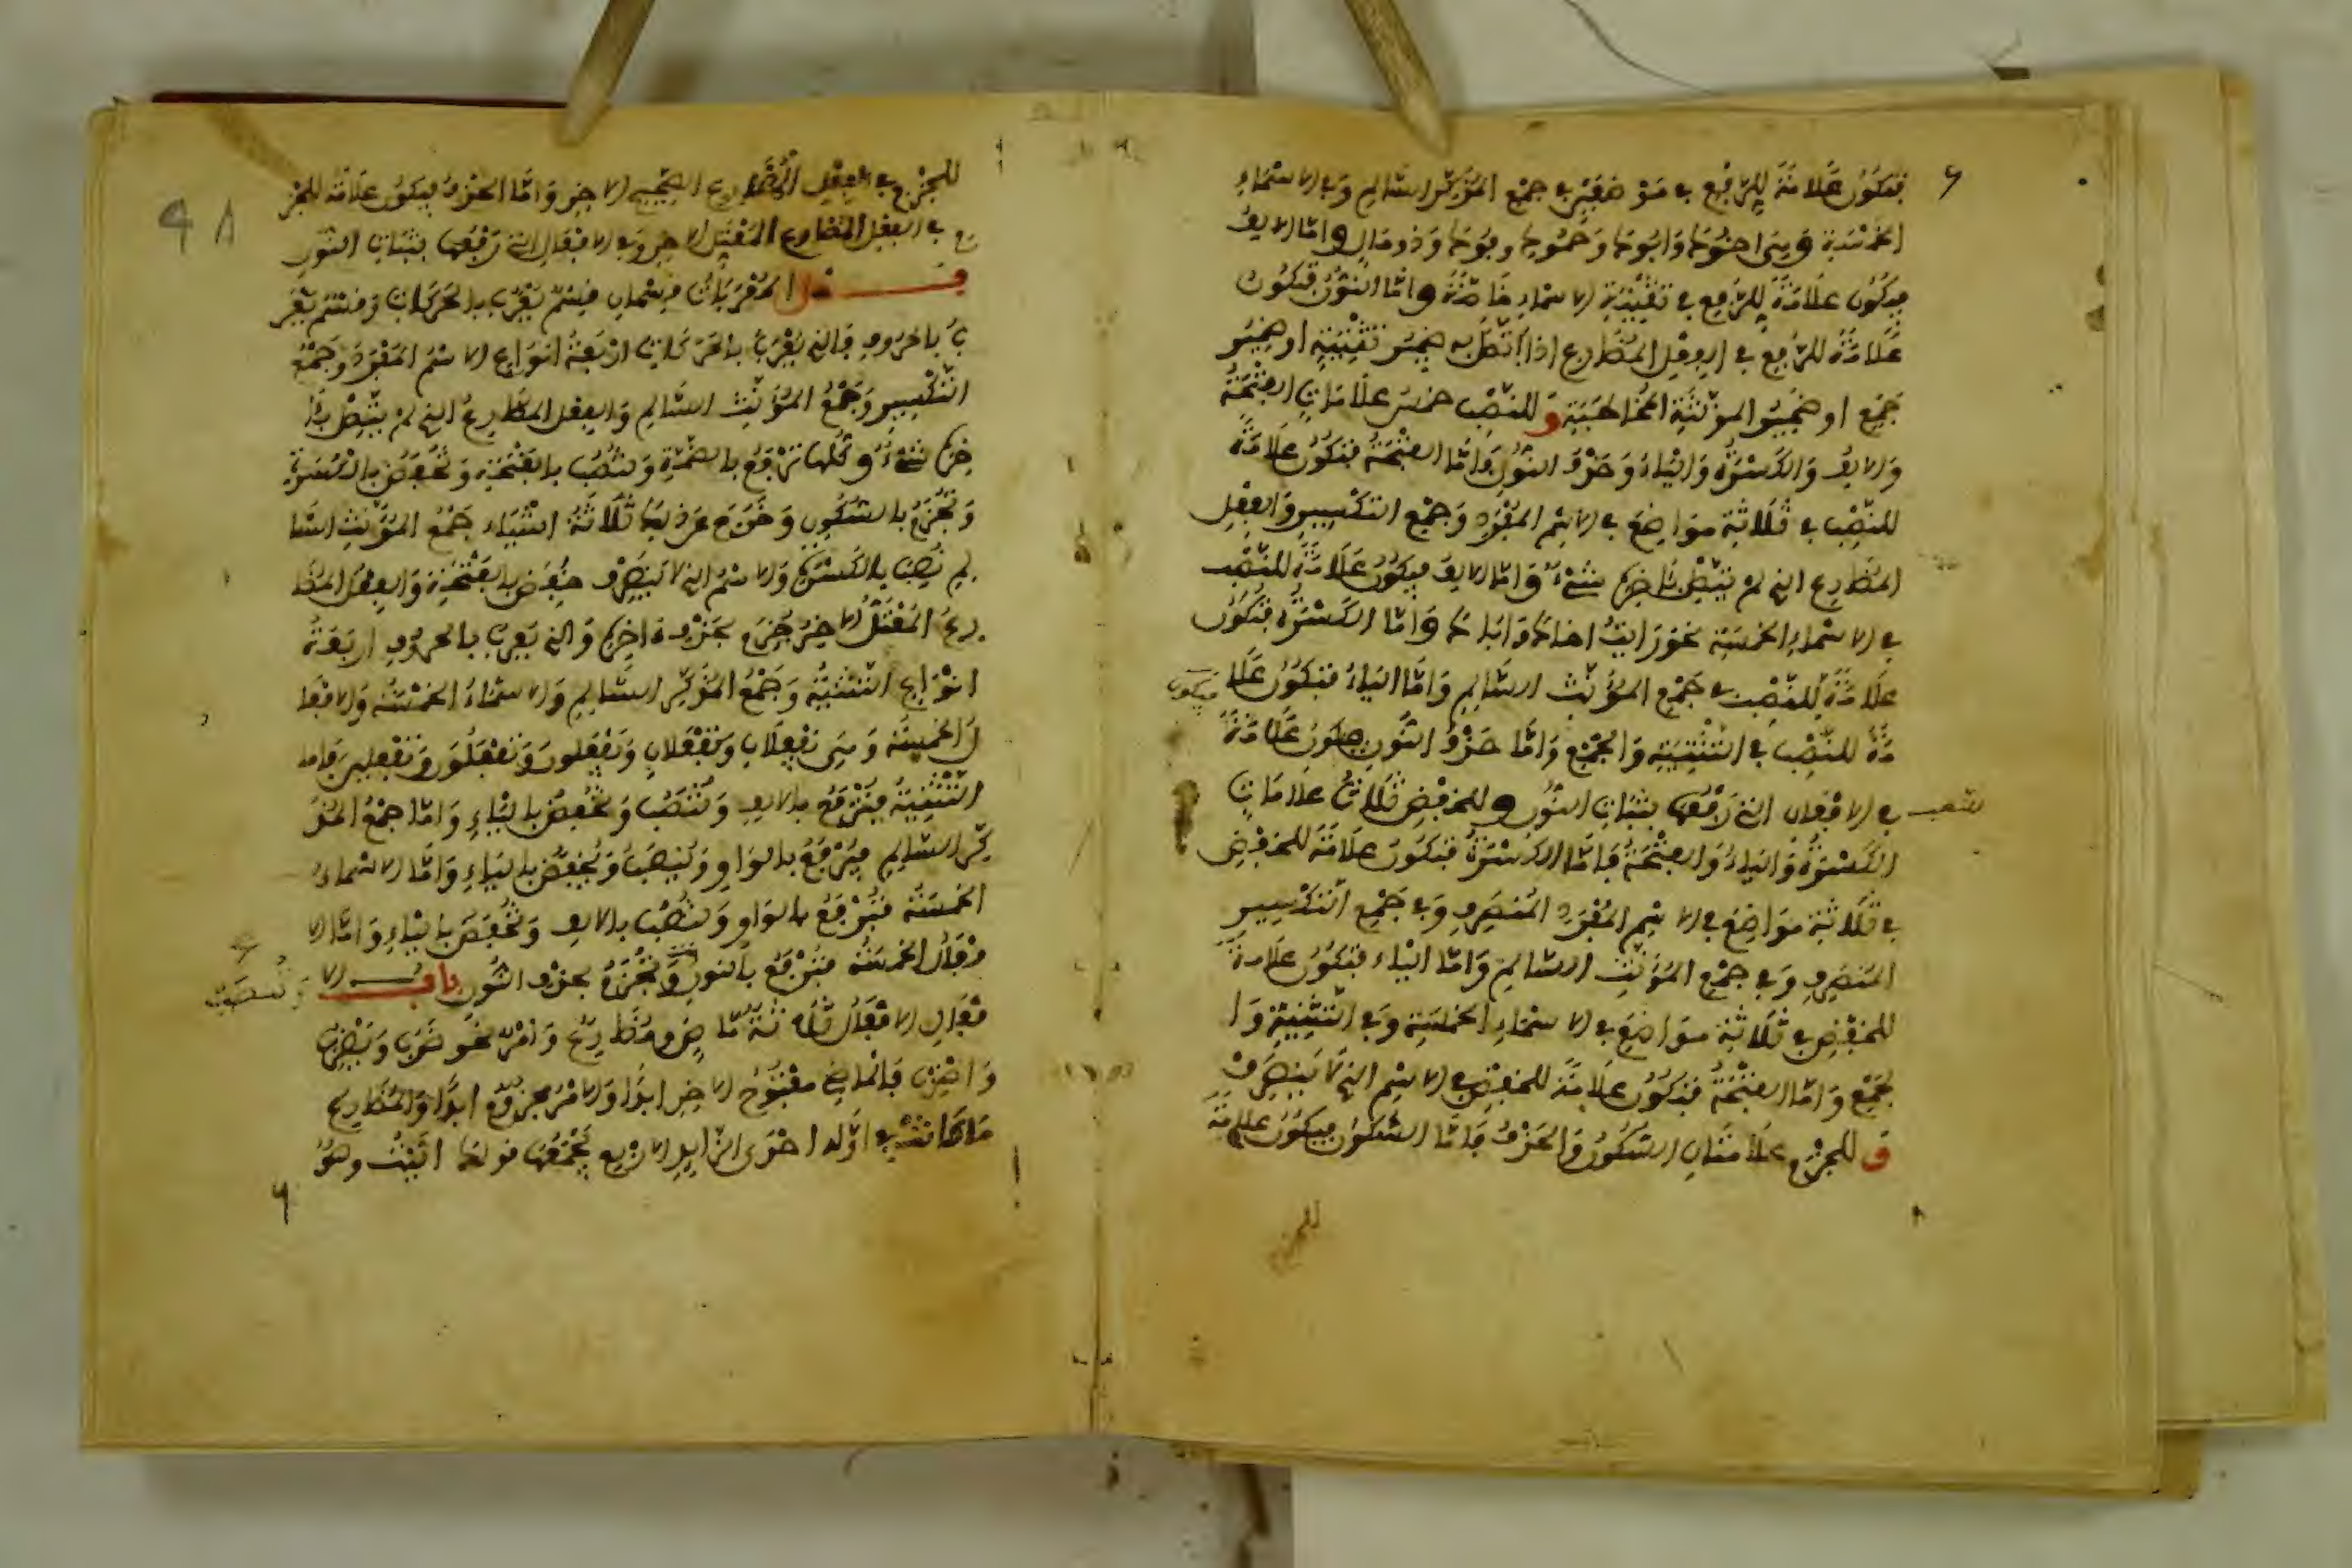 فتكون علامة للرفع في موضعين في جمع المذكر السالم وفي الاسماء
الخمسة وهي اخوك وابوك وحموك وفوك وذو مال واما الالف
فيكون علامة للرفع في تثنية الاسماء خاصة واما النون فتكون
علامة للرفع في الفعل المضارع اذا اتصل به ضمير تثنية او ضمير
جمع او ضمير المؤنثة المخاطبة وللنصب خمس علامات الفتحة
والالف والكسرة والياء وحذف النون فاما الفتحة فتكون علامة
للنصب في ثلاثة مواضع في الاسم المفرد وجمع التكسير والفعل
المضارع الذي لم يتصل باخره شيء واما الالف فيكون علامة للنصب
في الاسماء الخمسة نحو رايت اخاك واباك واما الكسرة فتكون
علامة للنصب في جمع المؤنث السالم واما الياء فتكون علا
مة للنصب في التثنية والجمع واما حذف النون فيكون علامة
فيكون
في الافعال التي رفعها بثبات النون وللخفض ثلاث علامات
الكسرة والياء والفتحة فاما الكسرة فتكون علامة للخفض
في ثلاثة مواضع في الاسم المفرد المنصرف وفي جمع التكسير
المنصرف وفي جمع المؤنث السالم واما الياء فتكون علامة
للخفض في ثلاثة مواضع في الاسماء الخمسة وفي التثنية وا
لجمع واما الفتحة فتكون علامة للخفض في الاسم الذي لا ينصرف
وللجزم علامتان السكون والحذف فاما السكون فيكون علامة
للجزم
للجزم في الفعل المضارع الصحيح الاخر واما الحذف فيكون علامة للجز
م في الفعل المضارع المعتل الاخر وفي الافعال التي رفعها بثبات النون
فصل المعربات قسمان قسم يعرب بالحركات وقسم يعر
ب بالحروف فالذي يعرب بالحركات اربعة انواع الاسم المفرد وجمع
التكسير وجمع المؤنث السالم والفعل المضارع الذي لم يتصل با
خره شيء وكلها ترفع بالضمة وتنصب بالفتحة وتخفض بالكسرة
وتجزم بالسكون وخرج عن ذلك ثلاثة اشياء جمع المؤنث السا
لم نصب بالكسرة والاسم الذي لا ينصرف خفض بالفتحة والفعل المضا
رع المعتل الاخر جزم بحذف اخره والذي يعرب بالحروف اربعة
انواع التثنية وجمع المذكر السالم والاسماء الخمسة والافعا
ل الخمسة وهي تفعلان ويفعلان ويفعلون وتفعلون وتفعلين فاما
التثنية فترفع بالالف وتنصب وتخفض بالياء واما جمع المذ
كر السالم فيرفع بالواو وينصب ويخفض بالياء واما الاسماء
الخمسة فترفع بالواو وتنصب بالالف وتخفض بالياء واما الا
فعال الخمسة فترفع بالنون وتجزم بحذف النون باب الا
وتنصب
فعال الافعال ثلاثة ماض ومضارع وامر نحو ضرب ويضرب
واضرب فالماضي مفتوح الاخر ابدا والامر مجزوم ابدا والمضارع
ما كانت في اوله احدى الزوايد الاربع يجمعها قولك انيت وهو